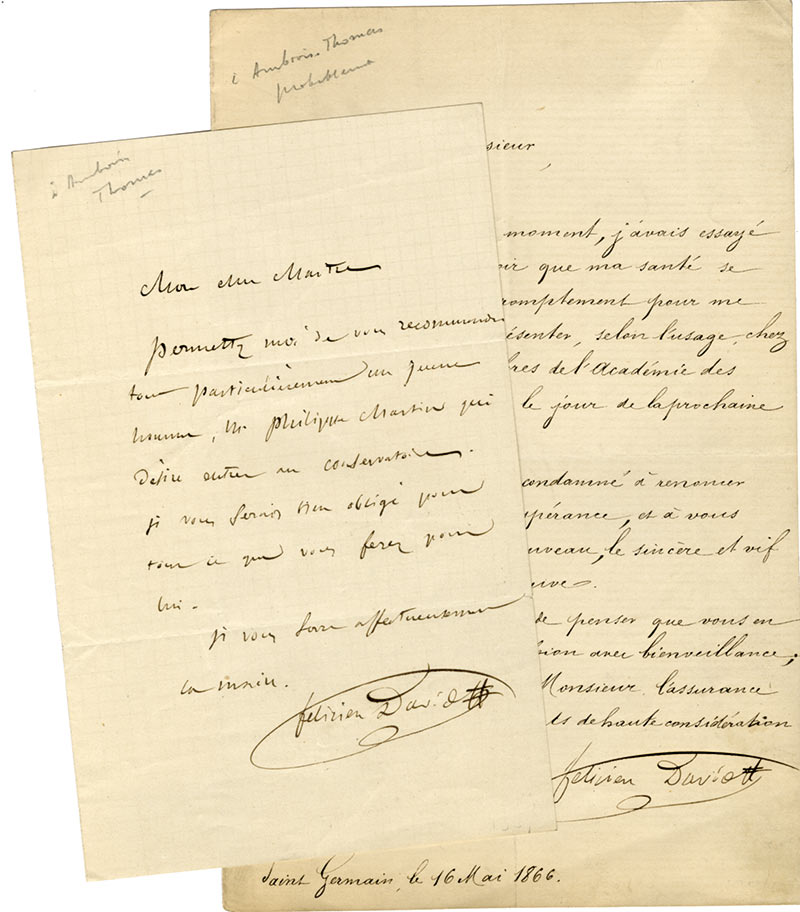 à Ambroise Thomas
Mon cher Maître
permettez moi de vous recommander
tout particulièrement un jeune
homme, Mr philippe Martin qui
désire entrer au conservatoire.
je vous serais bien obligé pour
tout ce que vous ferez pour
lui.
je vous serre affectueusement
la main.
felicien David
à Ambroise Thomas
probablement
sieur
moment, j'avais essayé
oir que ma santé se
romptement pour me
ésenter, selon l'usage, chez
bres de l'Académie des
le jour de la prochaine
condamné à renoncer
spérance, et à vous
uveau, le sincère et vif
uve.
de penser que vous en
avec bienveillance;
Monsieur l'assurance
ts de haute considération
felicien David
Saint Germain, le 16 Mai 1866.